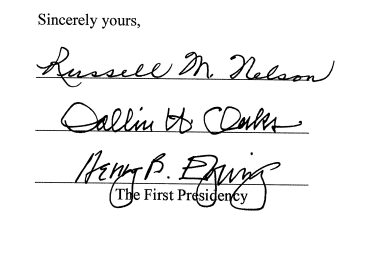 Sincerely yours,
Russell M. Nelson
Dallin H. Oaks
Henry B. Eyring
The First Presidency